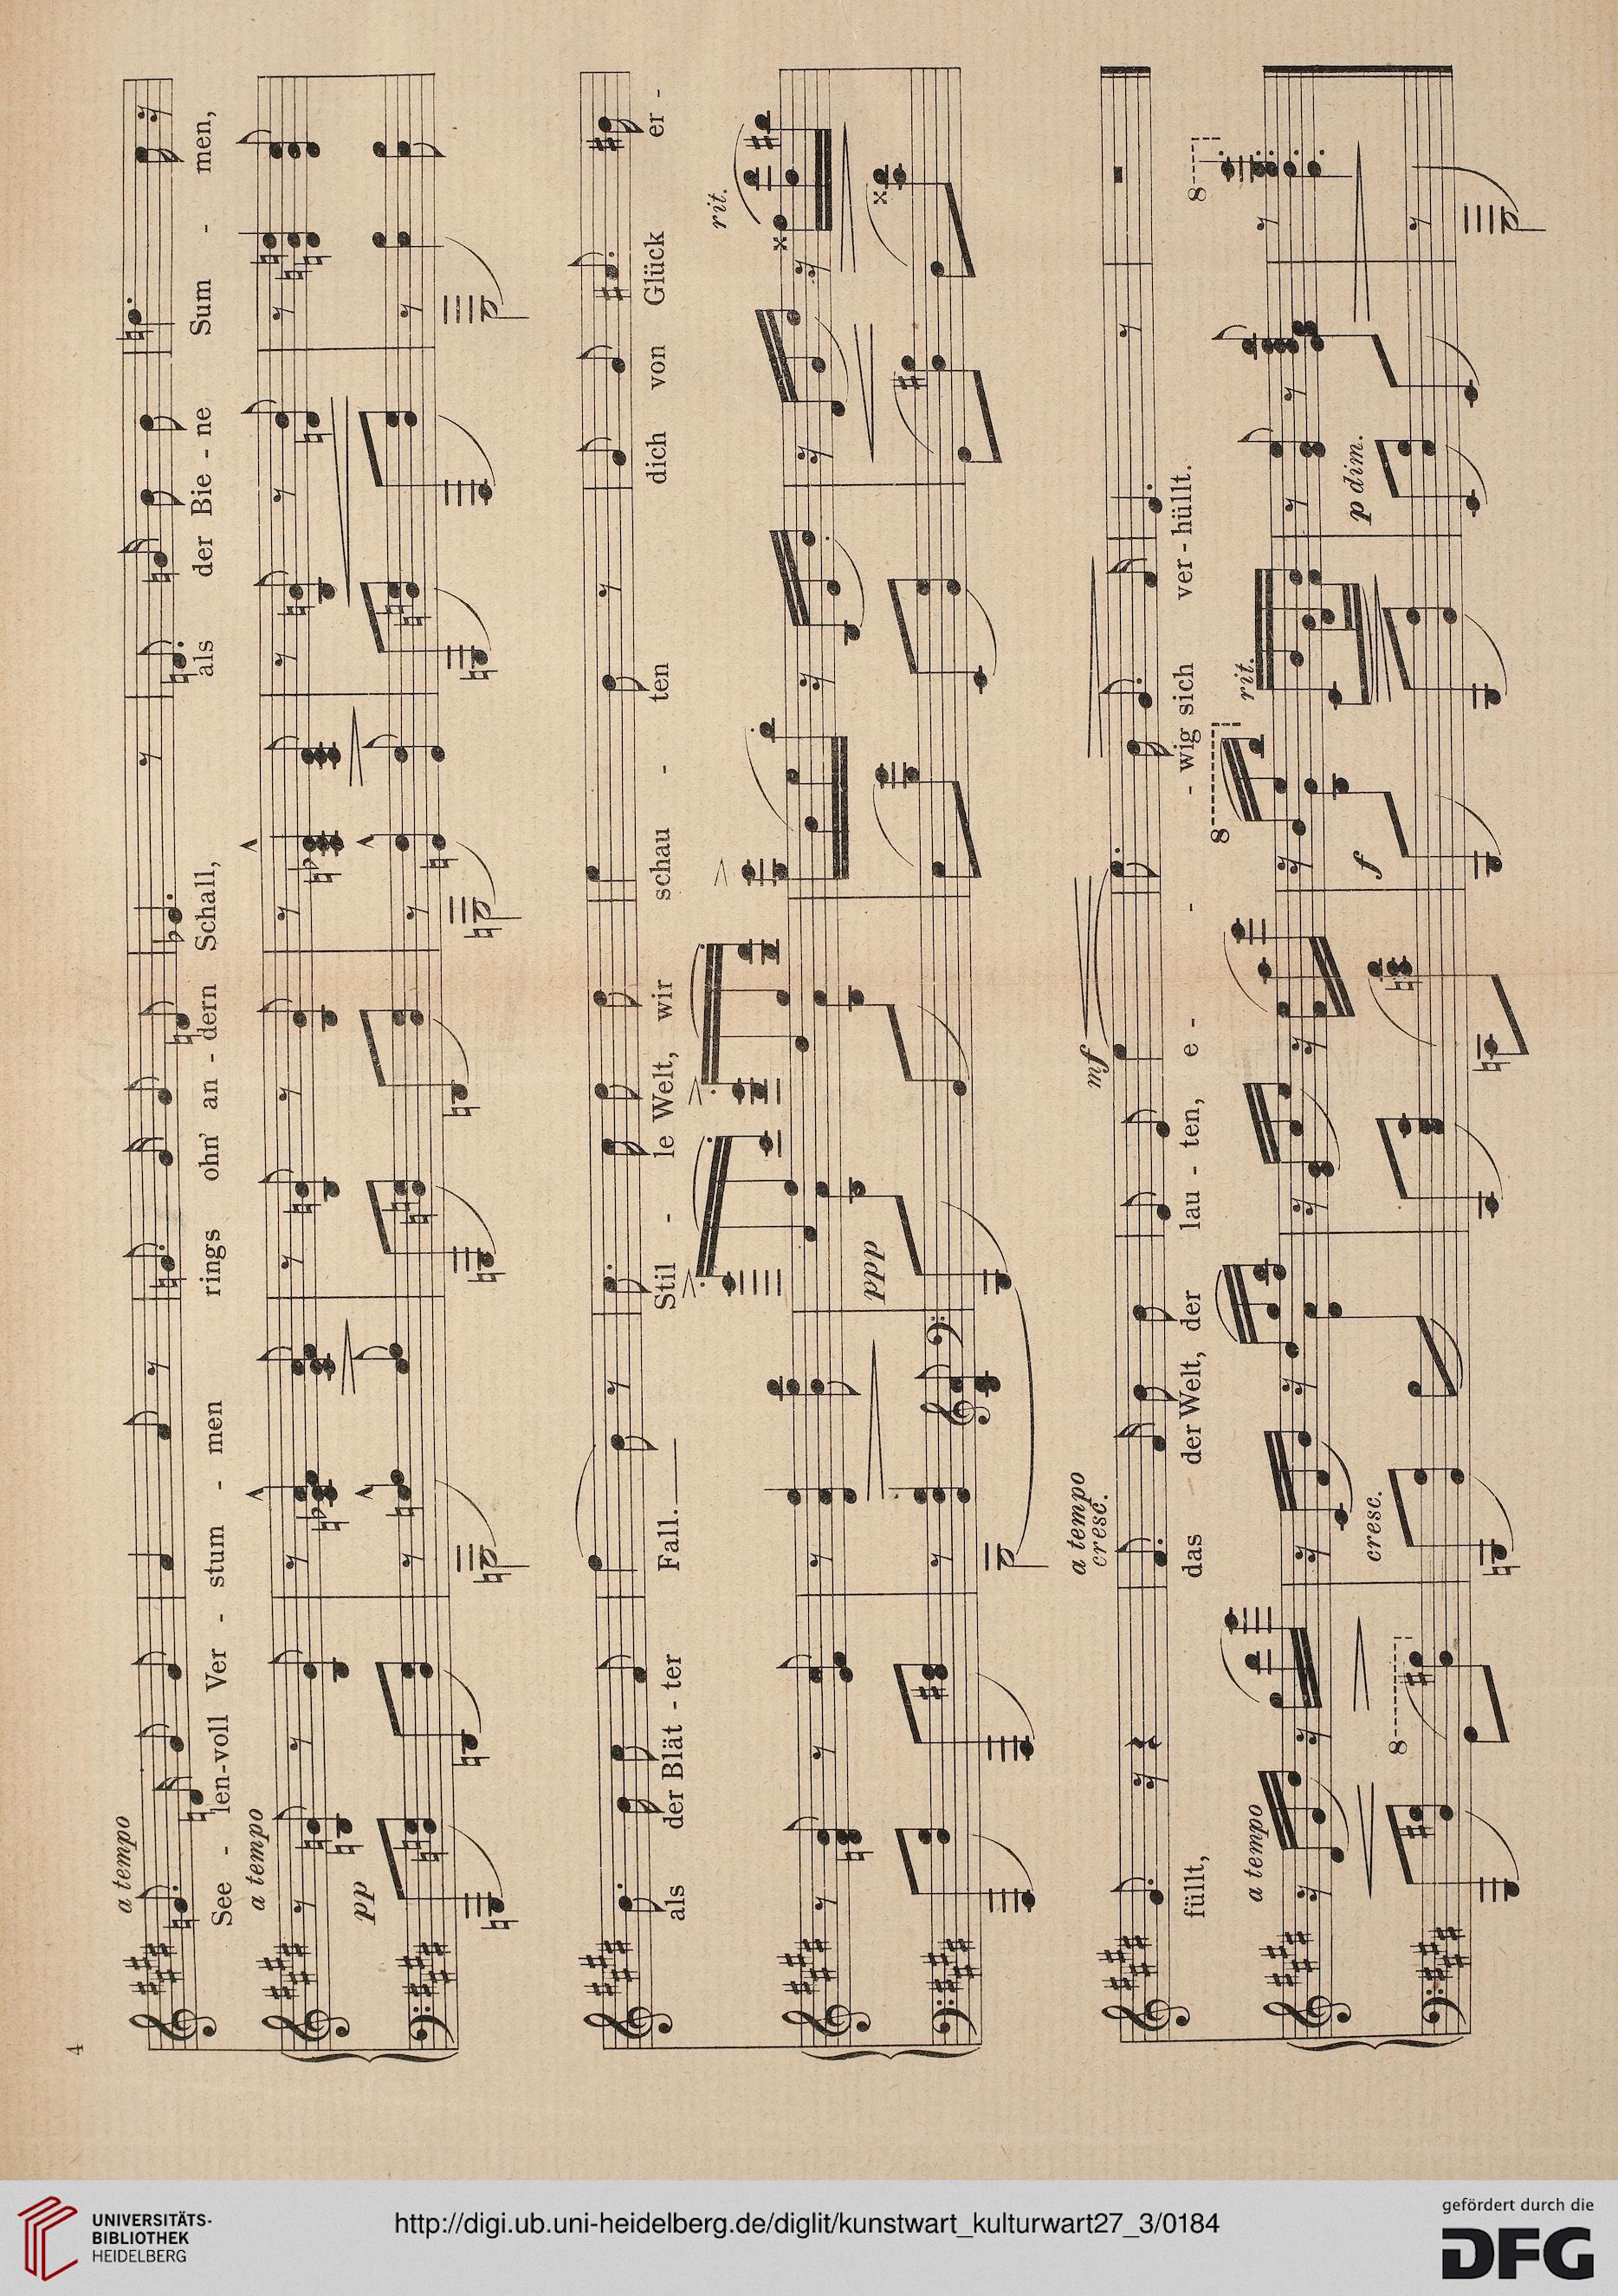 4
a tempo
See - len-voll Ver - stum - men rings ohn' an - dern Schall, als der Bie - ne Sum - men,
a tempo
pp
als der Blät - ter Fall. Stil - le Welt, wir schau - ten dich von Glück er -
rit.
ppp
a tempo
cresc.
mf
füllt, das der Welt, der lau - ten, e - - wig sich ver - hüllt.
8
rit.
8
a tempo
cresc.
f
p dim.
8
UNIVERSITÄTS-
BIBLIOTHEK
HEIDELBERG
http://digi.ub.uni-heidelberg.de/diglit/kunstwart_kulturwart27_3/0184
gefördert durch die
DFG